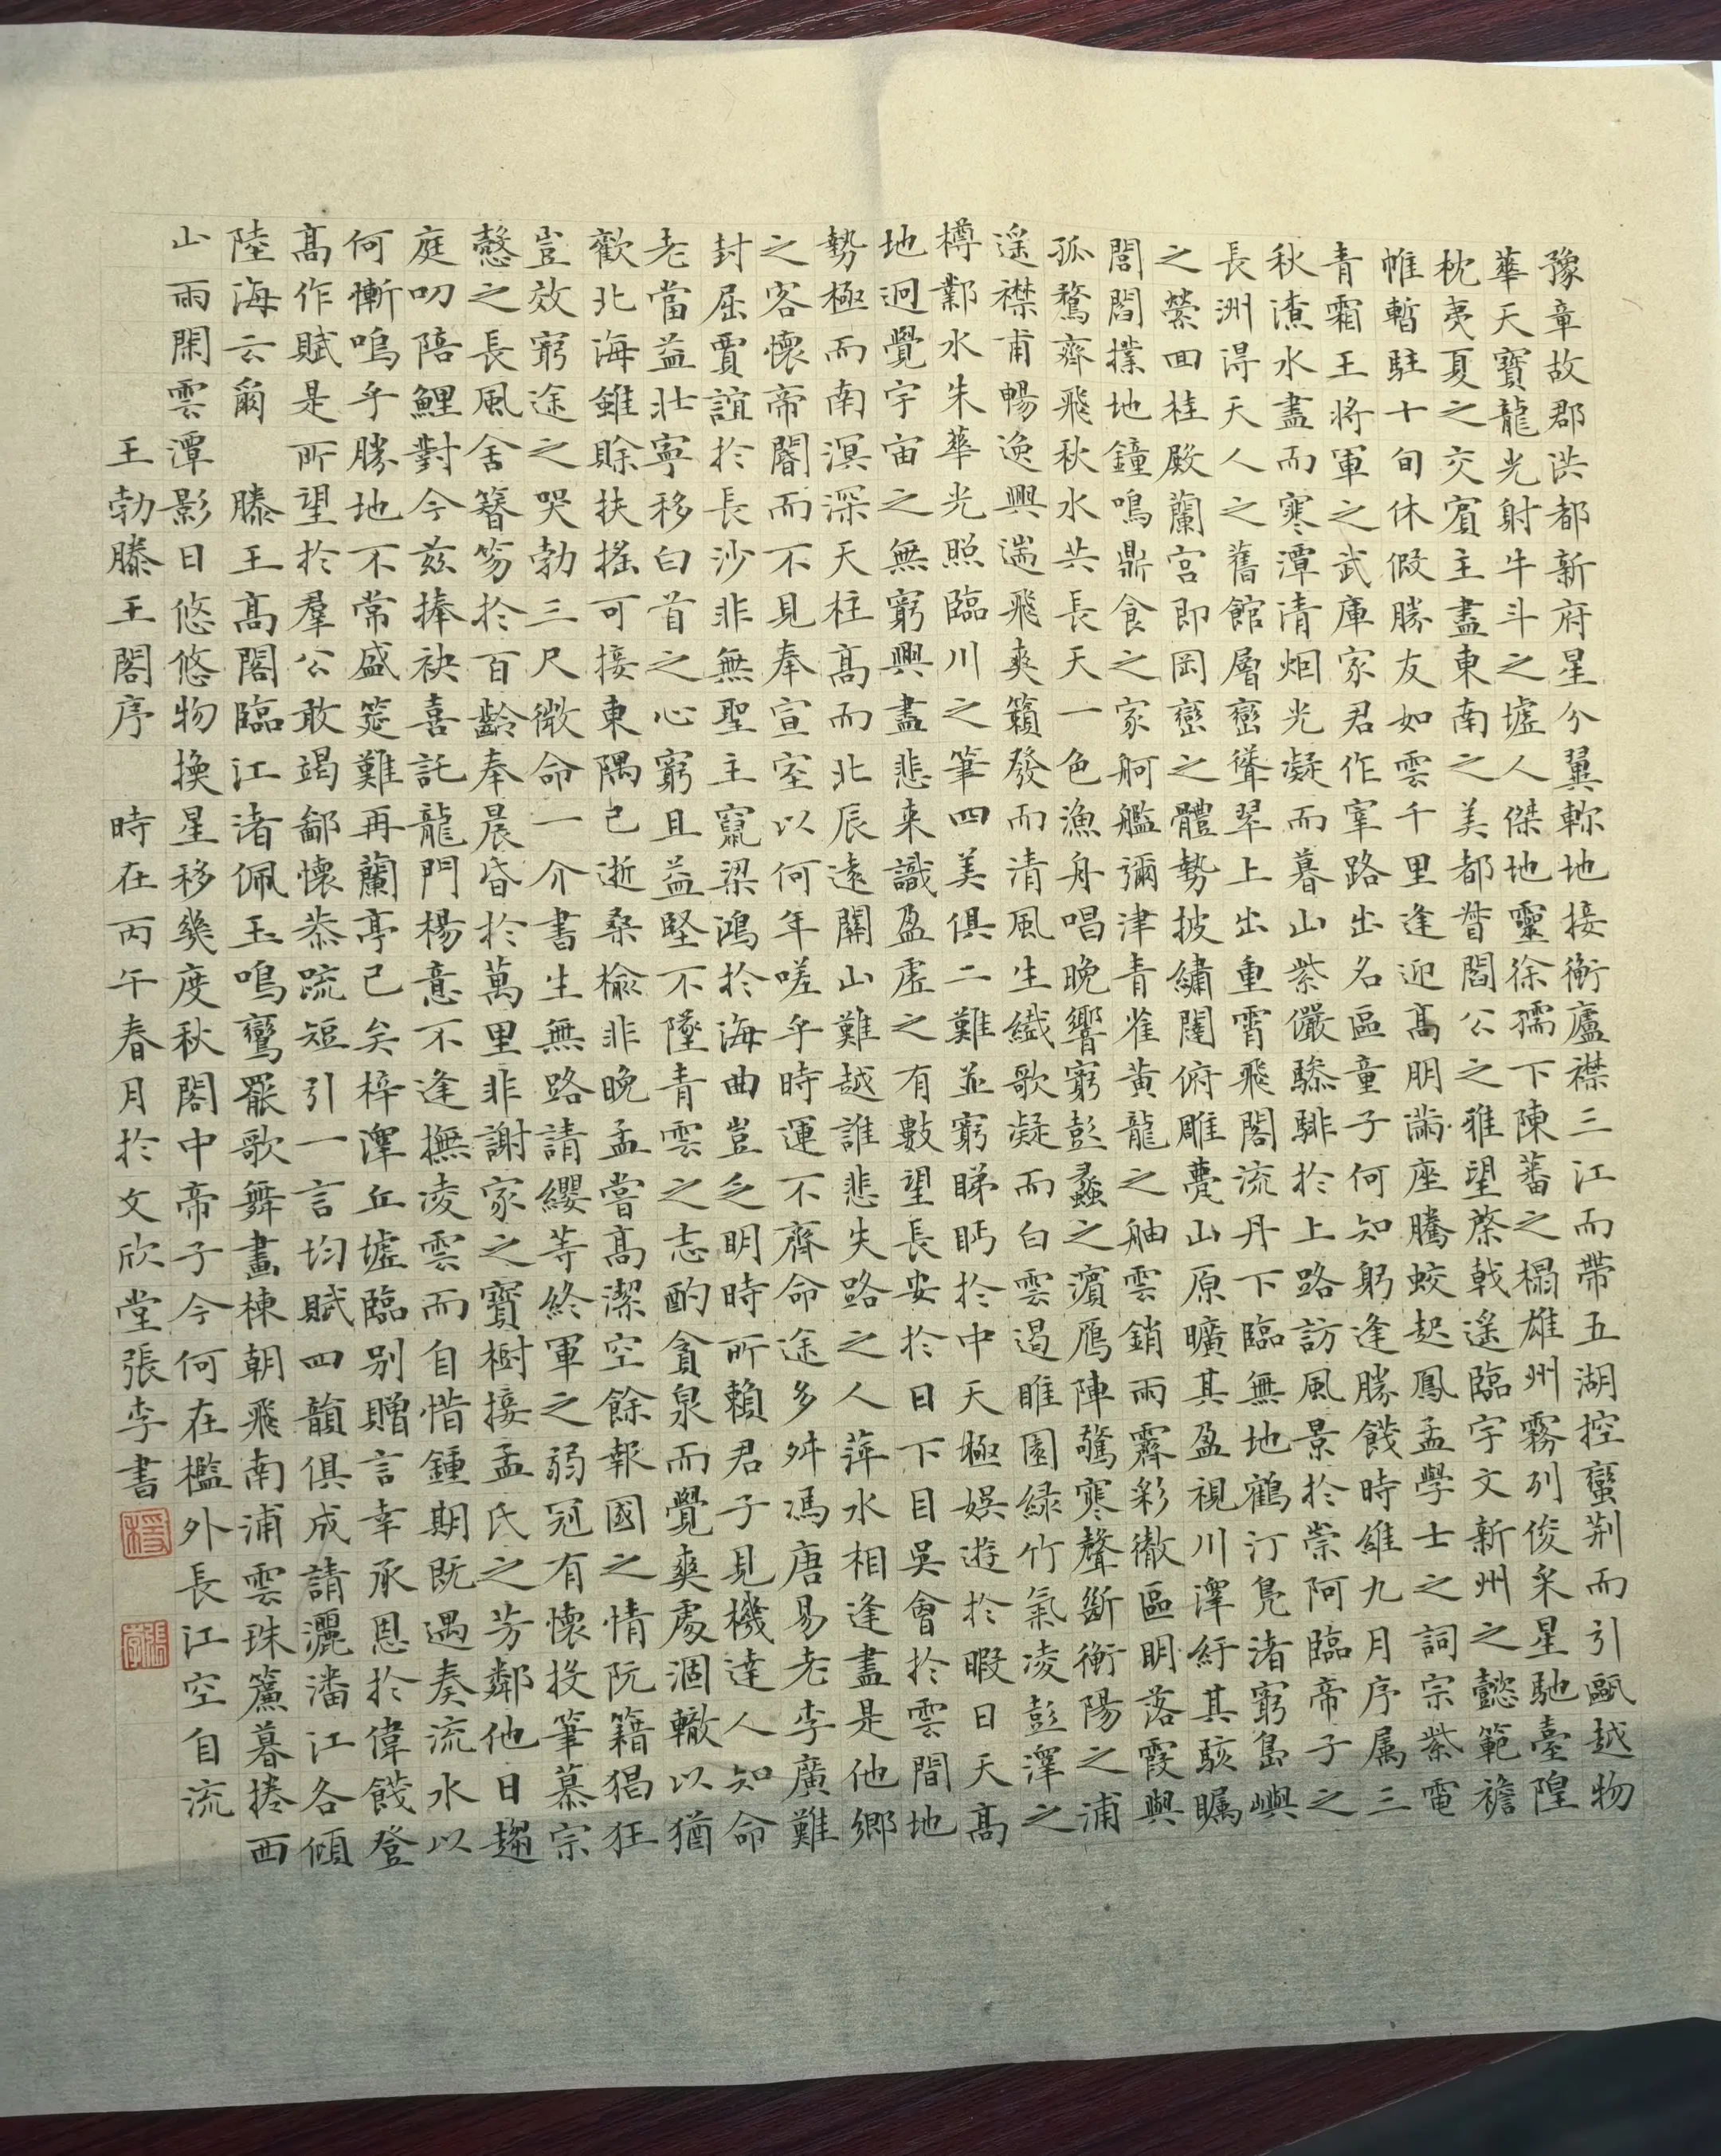 豫章故郡洪都新府星分翼軫地接衡廬襟三江而帶五湖控蠻荊而引甌越物
華天寶龍光射牛斗之墟人傑地靈徐孺下陳蕃之榻雄州霧列俊采星馳臺隍
枕夷夏之交賓主盡東南之美都督閻公之雅望棨戟遥臨宇文新州之懿範襜
帷暫駐十旬休假勝友如雲千里逢迎高朋滿座騰蛟起鳳孟學士之詞宗紫電
青霜王將軍之武庫家君作宰路出名區童子何知躬逢勝餞時維九月序属三
秋潦水盡而寒潭清烟光凝而暮山紫儼驂騑於上路訪風景於崇阿臨帝子之
長洲得天人之舊館層巒聳翠上出重霄飛閣流丹下臨無地鶴汀鳧渚窮島嶼
之縈回桂殿蘭宮即岡巒之體勢披繡闥俯雕甍山原曠其盈視川澤紆其駭矚
閭閻撲地鐘鳴鼎食之家舸艦彌津青雀黃龍之舳雲銷雨霽彩徹區明落霞與
孤鶩齊飛秋水共長天一色漁舟唱晚響窮彭蠡之濱雁陣驚寒聲斷衡陽之浦
遥襟甫暢逸興遄飛爽籟發而清風生纖歌凝而白雲遏睢園綠竹氣凌彭澤之
樽鄴水朱華光照臨川之筆四美俱二難並窮睇眄於中天極娛遊於暇日天高
地迥覺宇宙之無窮興盡悲来識盈虛之有數望長安於日下目吳會於雲間地
勢極而南溟深天柱高而北辰遠關山難越誰悲失路之人萍水相逢盡是他鄉
之客懷帝閽而不見奉宣室以何年嗟乎時運不齊命途多舛馮唐易老李廣難
封屈賈誼於長沙非無聖主竄梁鴻於海曲豈乏明時所賴君子見機達人知命
老當益壯寧移白首之心窮且益堅不墜青雲之志酌貪泉而覺爽處涸轍以猶
歡北海雖賒扶搖可接東隅已逝桑榆非晚孟嘗高潔空餘報國之情阮籍猖狂
豈效窮途之哭勃三尺微命一介書生無路請纓等終軍之弱冠有懷投筆慕宗
慤之長風舍簪笏於百齡奉晨昏於萬里非謝家之寶樹接孟氏之芳鄰他日趨
庭叨陪鯉對今茲捧袂喜託龍門楊意不逢撫凌雲而自惜鍾期既遇奏流水以
何慚嗚乎勝地不常盛筵難再蘭亭已矣梓澤丘墟臨別贈言幸承恩於偉餞登
高作賦是所望於羣公敢竭鄙懷恭疏短引一言均賦四韻俱成請灑潘江各傾
陸海云爾 滕王高閣臨江渚佩玉鳴鸞罷歌舞畫棟朝飛南浦雲珠簾暮捲西
山雨閑雲潭影日悠悠物換星移幾度秋閣中帝子今何在檻外長江空自流
王勃滕王閣序 時在丙午春月於文欣堂張李書